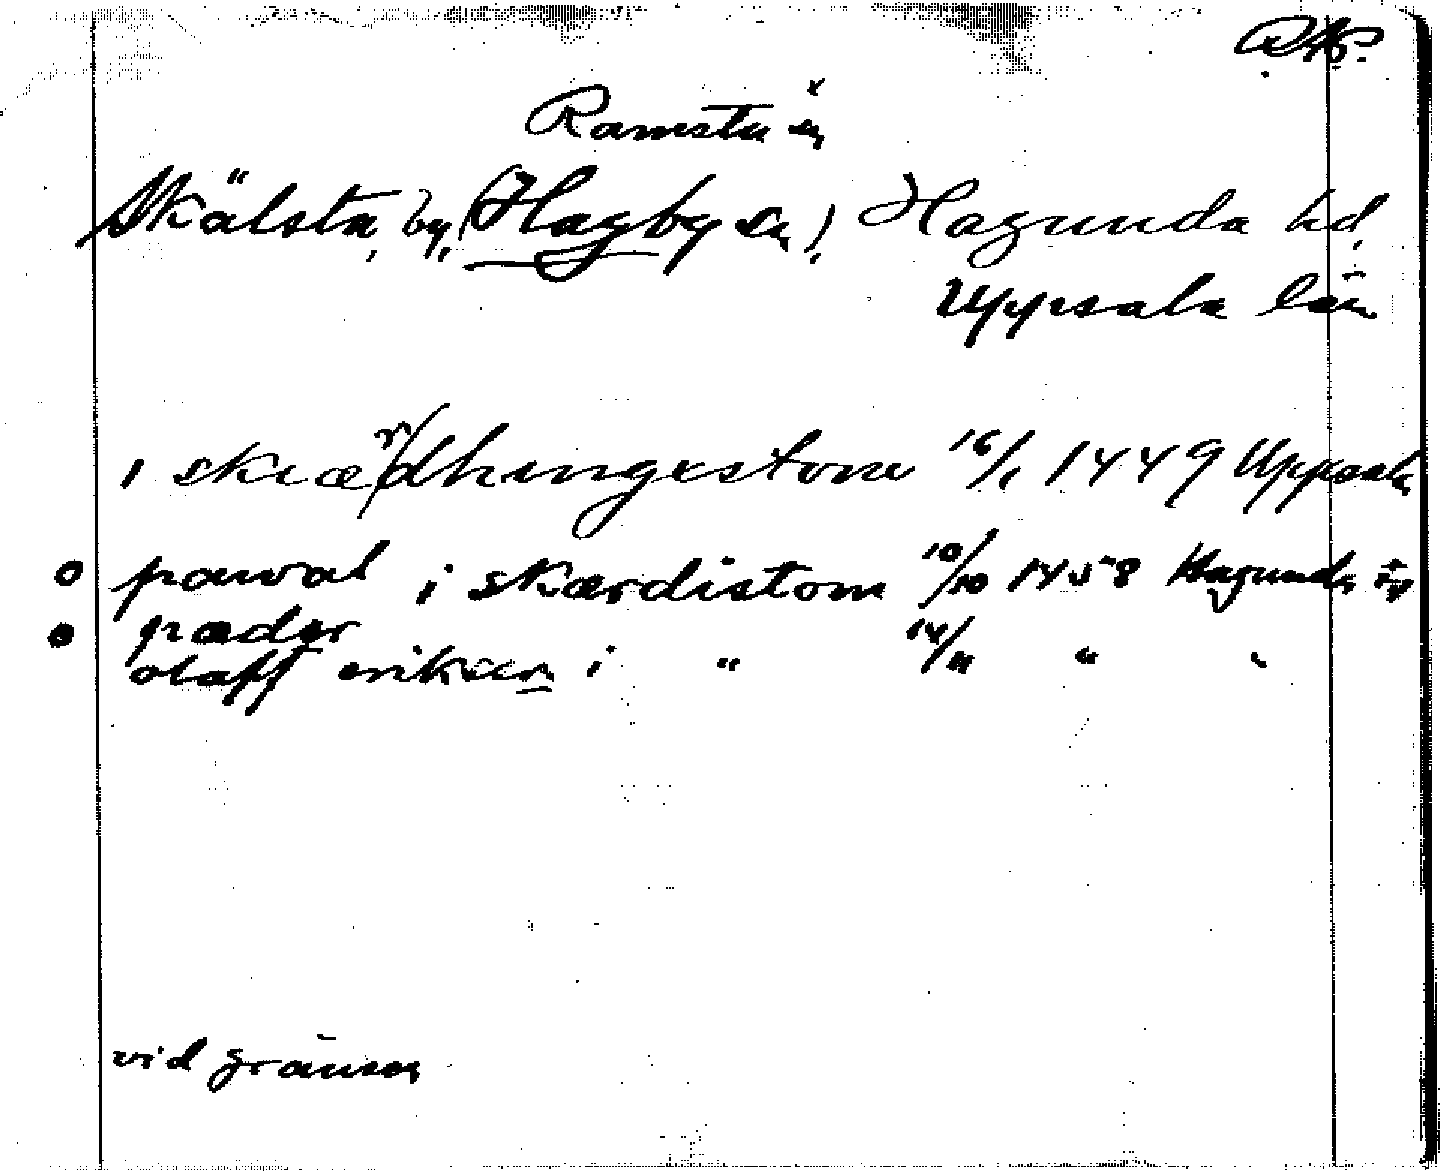 RAP.
Ramsta sn
Skälsta, by, (Hagby sn), Hagunda hd,
Uppsala län
i skræ(r)dhingestone 16/1 1449 Uppsala
pawal i skærdistom 10/10 1458 Hagunda
pæder
olaff erikssn i " 14/" " "
vid gränsen